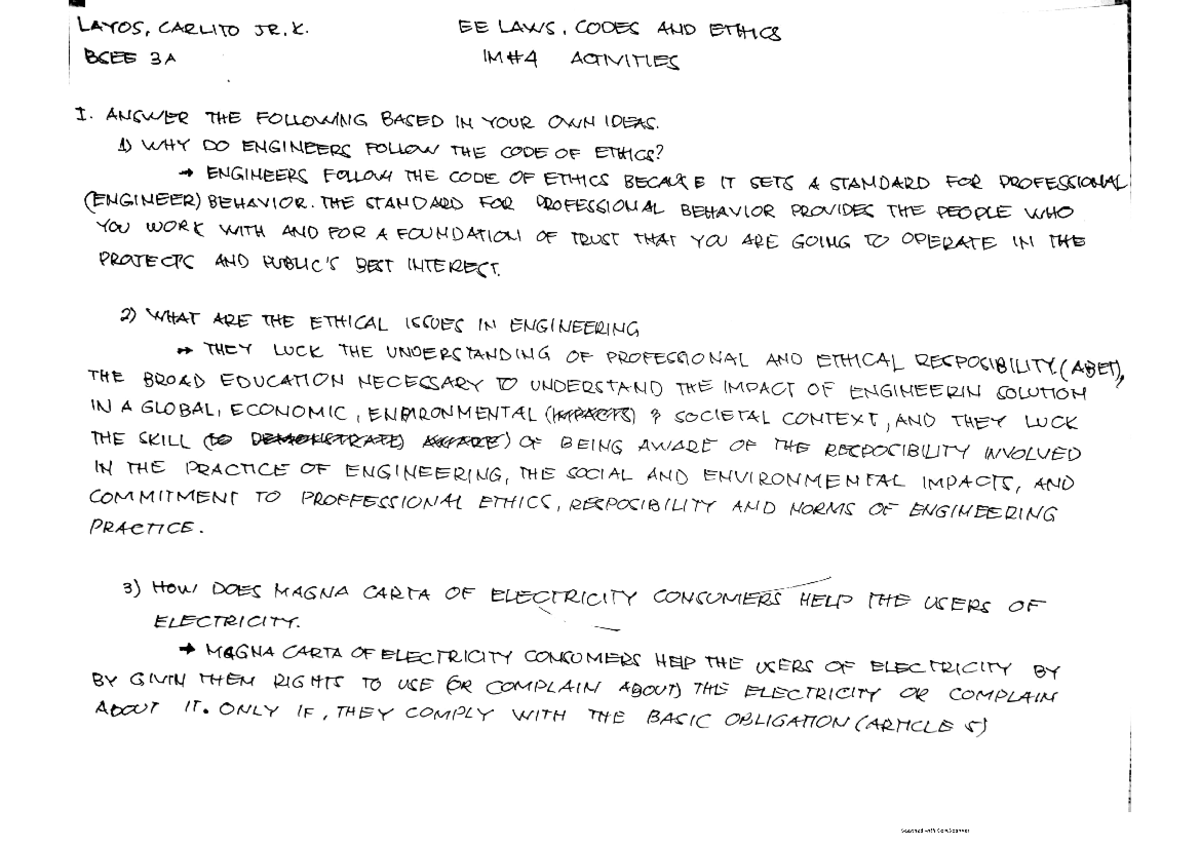 LAYOS, CARLITO JR. K. EE LAWS, CODES AND ETHICS
BSEE 3A IM#4 ACTIVITIES
I. ANSWER THE FOLLOWING BASED IN YOUR OWN IDEAS.
1) WHY DO ENGINEERS FOLLOW THE CODE OF ETHICS?
→ ENGINEERS FOLLOW THE CODE OF ETHICS BECAUSE IT SETS A STANDARD FOR PROFESSIONAL
(ENGINEER) BEHAVIOR. THE STANDARD FOR PROFESSIONAL BEHAVIOR PROVIDES THE PEOPLE WHO
YOU WORK WITH AND FOR A FOUNDATION OF TRUST THAT YOU ARE GOING TO OPERATE IN THE
PROJECTS AND PUBLIC'S BEST INTEREST.
2) WHAT ARE THE ETHICAL ISSUES IN ENGINEERING
→ THEY LUCK THE UNDERSTANDING OF PROFESSIONAL AND ETHICAL RESPOSIBILITY (ABET),
THE BROAD EDUCATION NECESSARY TO UNDERSTAND THE IMPACT OF ENGINEERIN SOLUTION
IN A GLOBAL, ECONOMIC, ENVIRONMENTAL (IMPACTS) & SOCIETAL CONTEXT, AND THEY LUCK
THE SKILL (TO DEMONSTRATE) AWARE) OF BEING AWARE OF THE RESPOCIBILITY INVOLVED
IN THE PRACTICE OF ENGINEERING, THE SOCIAL AND ENVIRONMENTAL IMPACTS, AND
COMMITMENT TO PROFFESSIONAL ETHICS, RESPOSIBILITY AND NORMS OF ENGINEERING
PRACTICE.
3) HOW DOES MAGNA CARTA OF ELECTRICITY CONSUMERS HELP THE USERS OF
ELECTRICITY.
→ MAGNA CARTA OF ELECTRICITY CONSUMERS HELP THE USERS OF ELECTRICITY BY
BY GIVIN THEM RIGHTS TO USE (OR COMPLAIN ABOUT) THE ELECTRICITY OR COMPLAIN
ABOUT IT. ONLY IF, THEY COMPLY WITH THE BASIC OBLIGATION (ARTICLE 5)
Scanned with CamScanner